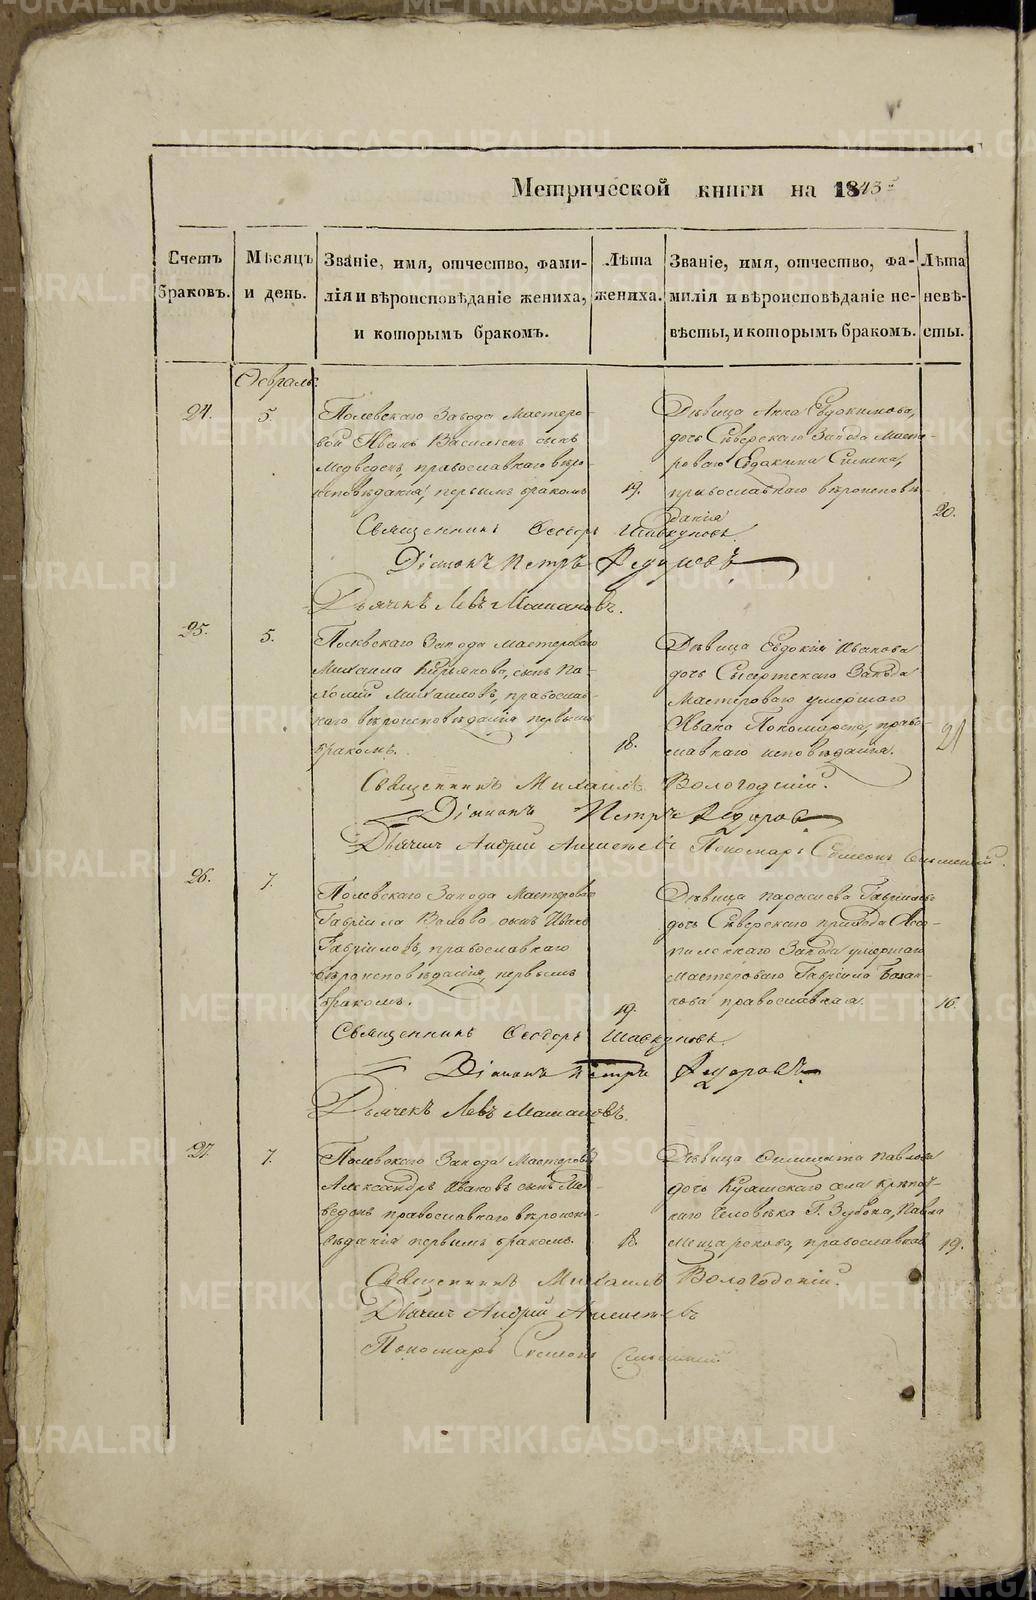 Метрической книги на 1843 г
Счетъ браковъ.
Мѣсяцъ и день.
Званіе, имя, отчество, фамилія и вѣроисповѣданіе жениха, и которымъ бракомъ.
Лѣта жениха.
Званіе, имя, отчество, фамилія и вѣроисповѣданіе невѣсты, и которымъ бракомъ.
Лѣта невѣсты.
Февраль
24.
5.
Полевскаго Завода Мастеро-
вой Иванъ Васильевъ сынъ
Медведевъ, православнаго вѣро-
исповѣданія, первымъ бракомъ
19.
Дѣвица Анна Евдокимова,
дочь Сѣверскаго Завода Масте-
роваго Евдокима
православнаго вѣроисповѣ-
данія
20.
Священникъ Феодоръ Шавкуновъ.
Діаконъ Петръ Федоровъ
Дьячекъ Левъ
25.
5.
Полевскаго Завода мастероваго
Михаила Кирьякова, сынъ
Михаиловъ, православ-
наго вѣроисповѣданія первымъ
бракомъ.
18.
Дѣвица Евдокия Иванова
дочь Сысертскаго Завода
Мастероваго умершаго
Ивана Пономарева, право-
славнаго исповѣданія.
21
Священникъ Михаилъ Вологодскій.
Діаконъ Петръ Федоровъ
Дьячекъ Андрей Пономарь Симеонъ
26.
7.
Полевскаго Завода Мастероваго
Гавріила сынъ Иванъ
Гавріиловъ, православнаго
вѣроисповѣданія, первымъ
бракомъ.
19.
Дѣвица Гавриилова
дочь Сѣверскаго прихода
Завода умершаго
Мастероваго Гавріила
православная.
16.
Священникъ Феодоръ Шавкуновъ.
Діаконъ Петръ Федоровъ
Дьячекъ Левъ
27.
7.
Полевскаго Завода Мастеровой
Александръ Ивановъ сынъ Ме-
ведевъ православнаго вѣроиспо-
вѣданія первымъ бракомъ.
18.
Дѣвица Павлова
дочь села крѣпост-
наго Человѣка Г. Зубова, Павла
православнаго
19.
Священникъ Михаилъ Вологодскій.
Дьячекъ Андрей
Пономарь Симеонъ
METRIKI.GASO-URAL.RU